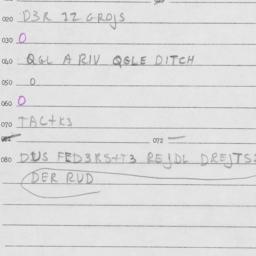 020 D3R 12 GROJS
030 O
040 QGL A RIV QGLE DITCH
050 O
060 O
070 TAC+K3
072
080 DUS FED3RS++3 REJDL DREJTS
DER RUD